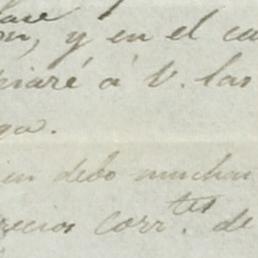 on, y en el ca
piaré á V. las
ga.
ien debo muchas
precios corr.tes de